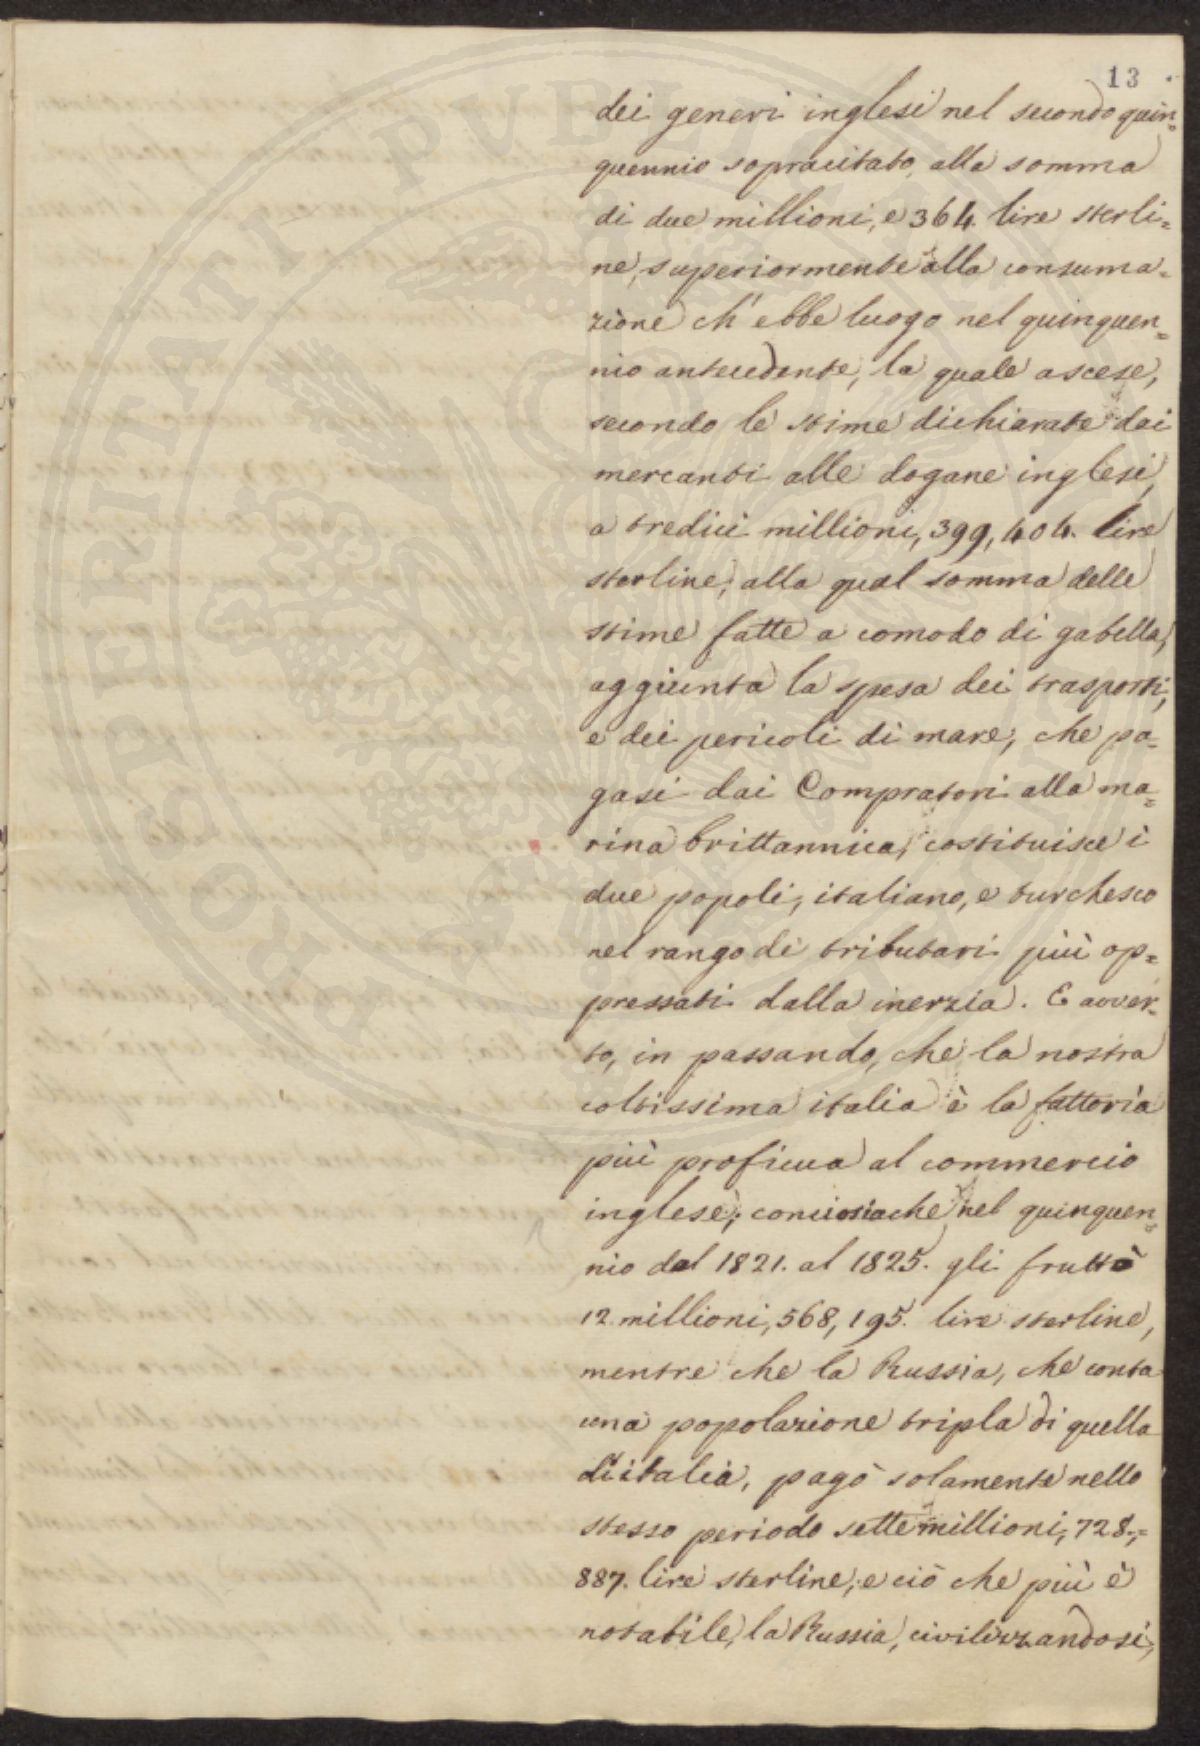 13
dei generi inglesi nel secondo quin=
quennio sopracitato, alla somma
di due millioni, e 364. lire sterli=
ne, superiormente alla consuma=
zione ch'ebbe luogo nel quinquen=
nio antecedente, la quale ascese,
secondo le stime dichiarate dai
mercanti alle dogane inglesi,
a tredici millioni, 399, 404. lire
sterline; alla qual somma delle
stime fatte a comodo di gabella,
aggiunta la spesa dei trasporti,
e dei pericoli di mare, che pa=
gasi dai Compratori alla ma=
rina brittannica, costituisce i
due popoli, italiano, e turchesco
nel rango di tributari più op=
pressati dalla inerzia. E avver=
to, in passando, che la nostra
coltissima italia è la fattoria
più proficua al commercio
inglese; conciosiache nel quinquen=
nio dal 1821. al 1825. gli fruttò
12. millioni, 568, 195. lire sterline,
mentre che la Russia, che conta
una popolazione tripla di quella
d'italia, pagò solamente nello
stesso periodo sette millioni, 728.,=
887. lire sterline; e ciò che più è
notabile, la Russia, civilizzandosi,
PROSPERITATI PUBLICAE